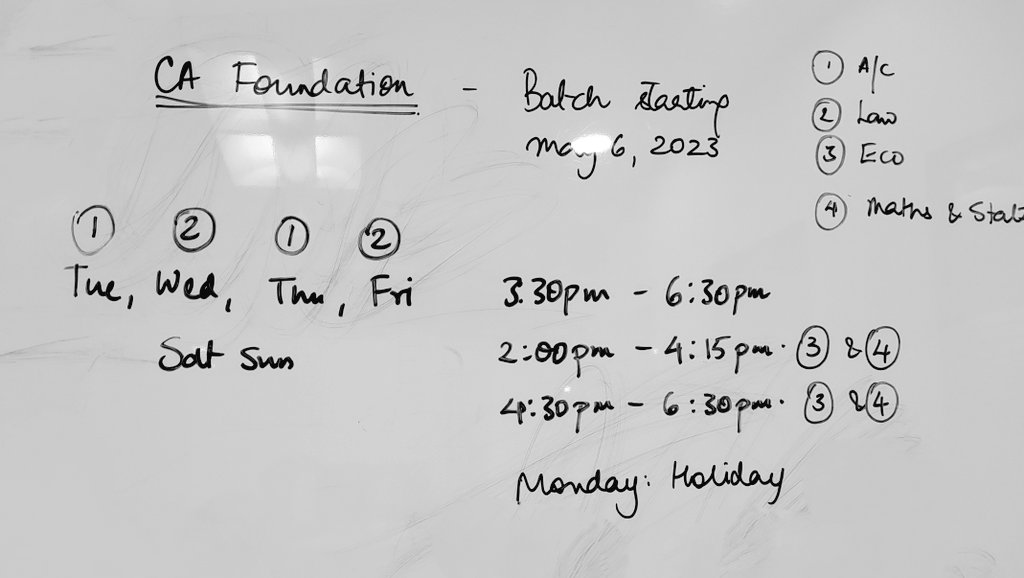 CA Foundation - Batch starting
May 6, 2023
① A/c
② Law
③ Eco
④ Maths & Stat
① ② ① ②
Tue, Wed, Thu, Fri 3.30pm - 6:30pm
Sat Sun 2:00pm - 4:15pm. ③ & ④
4:30pm - 6:30pm. ③ & ④
Monday: Holiday